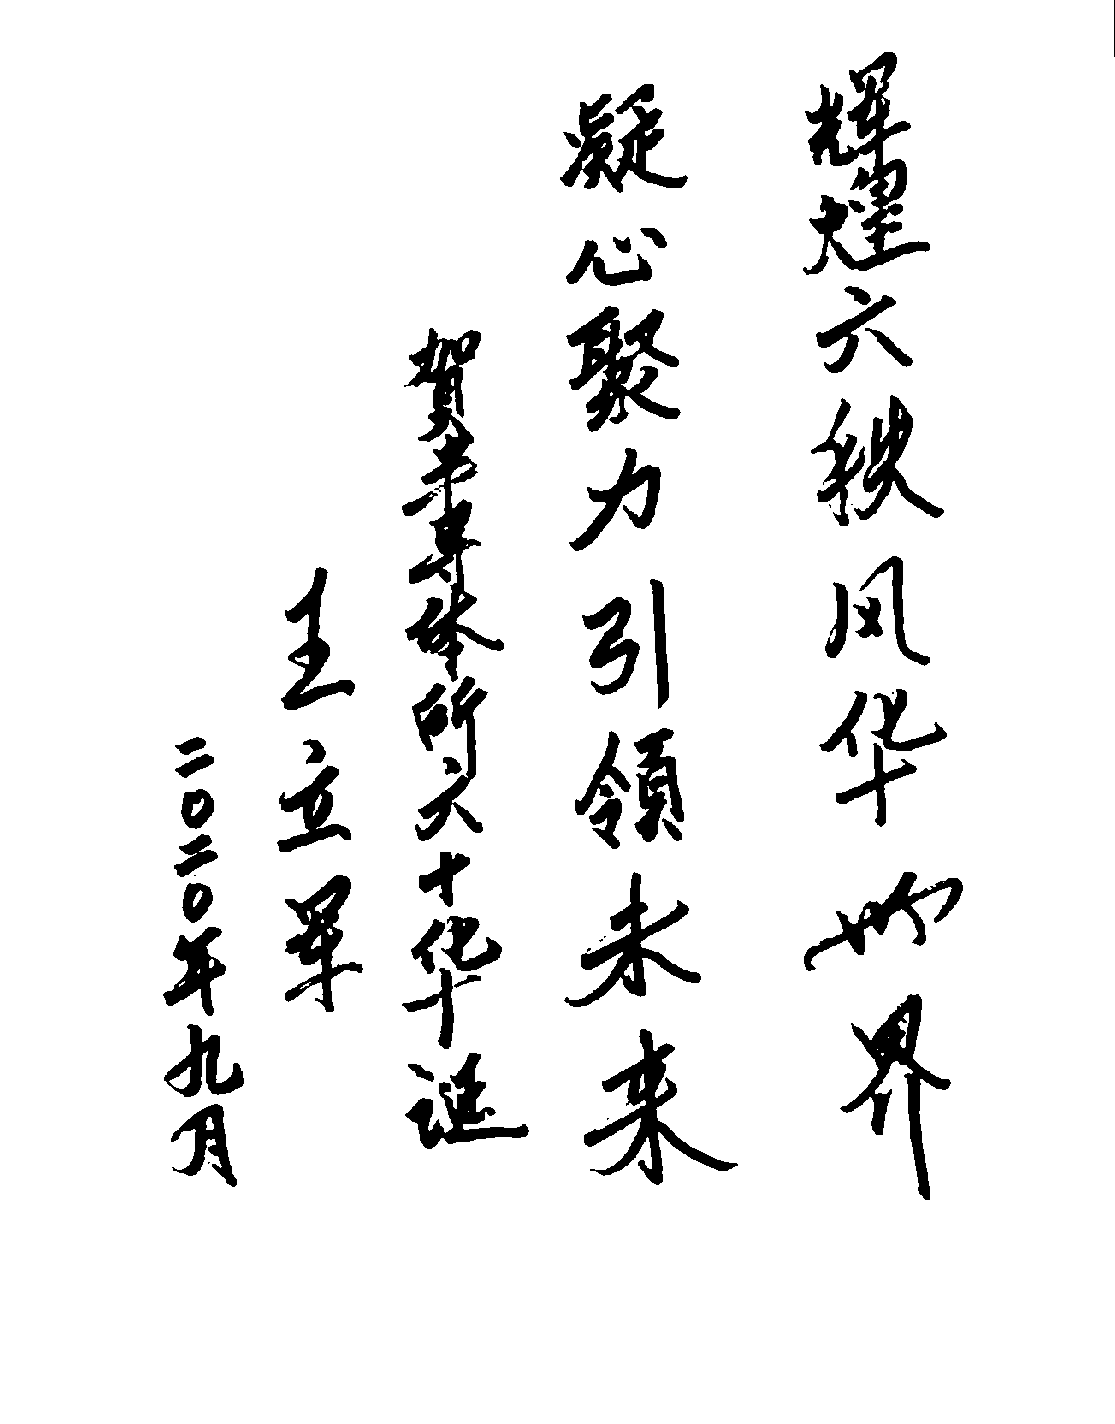 辉煌六秩风华世界
凝心聚力引领未来
贺半导体所六十华诞
王立军
二〇二〇年九月